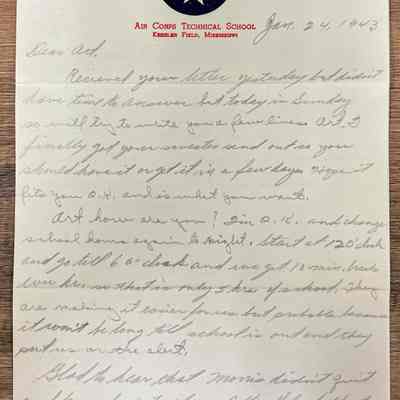 AIR CORPS TECHNICAL SCHOOL
KEESLER FIELD, MISSISSIPPI
Jan. 24, 1943
Dear Art,
Received your letter yesterday but didn't
have time to answer but today is Sunday
so will try to write you a few lines. Art, I
finally got your sweater send out so you
should have it or get it in a few days. Hope it
fits you O.K. and is what you want.
Art how are you? I'm O.K. and change
school hours again to night. Start at 12 O'clock
and go till 6 O'clock and we get
that is only 5 hrs of school. They
are making it easier for us but probable because
it won't be long till school is out and they
put us on the alert.
Glad to hear, that Morris didn't quit